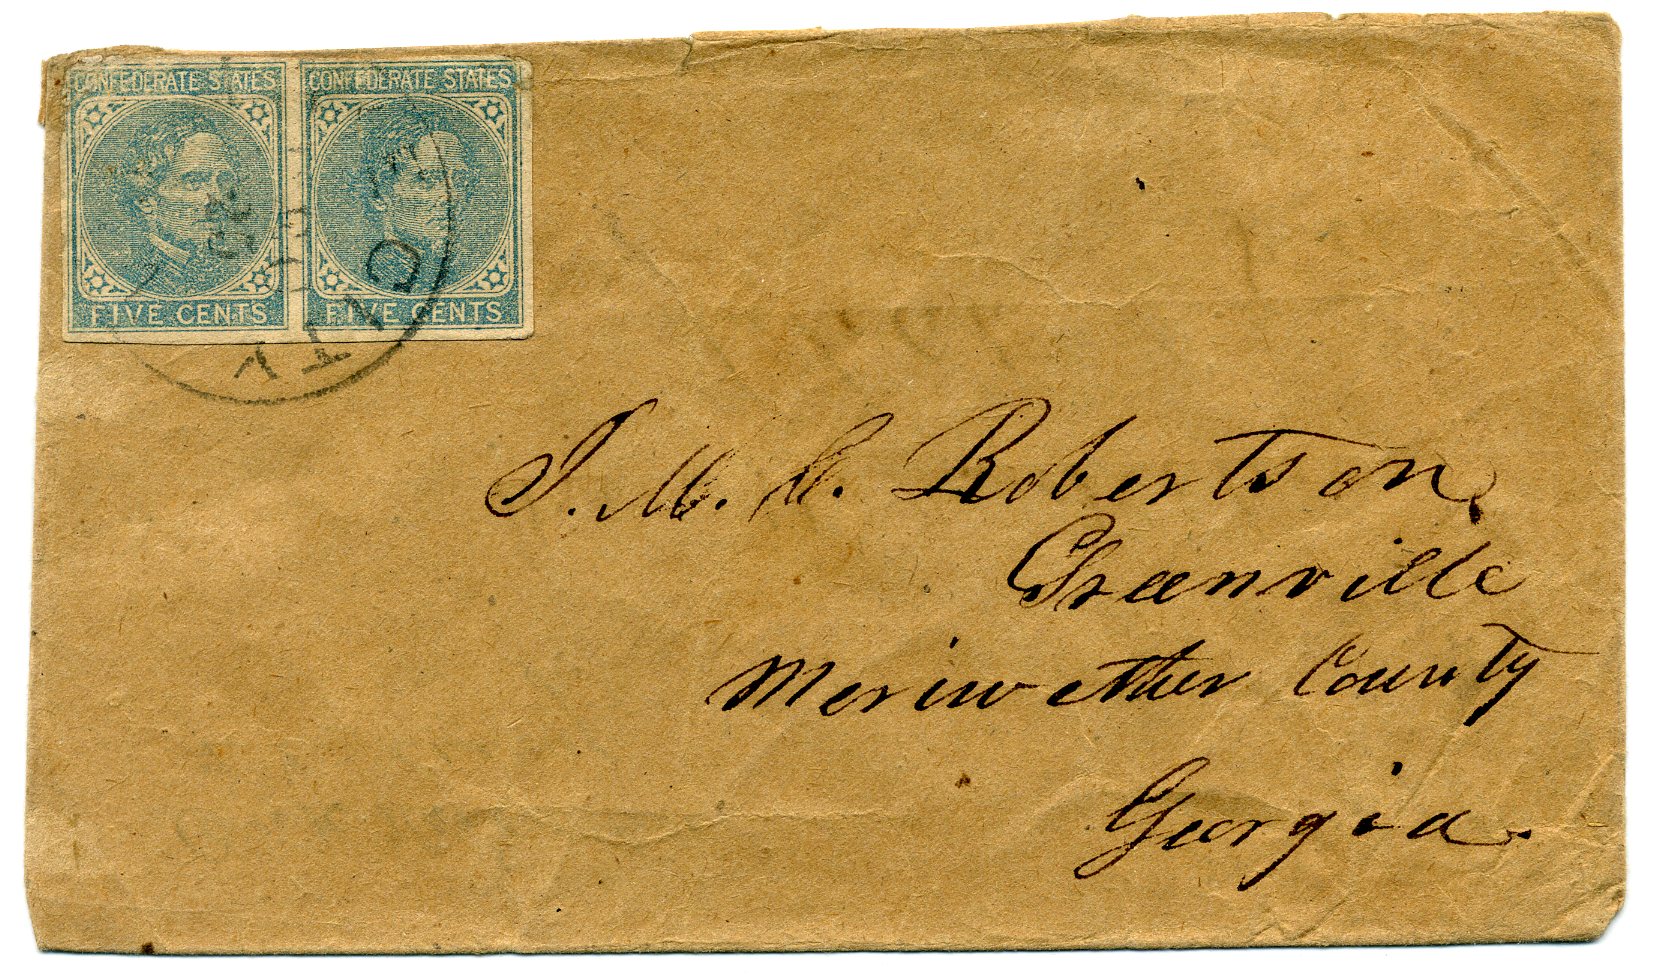 CONFEDERATE STATES CONFEDERATE STATES
FIVE CENTS FIVE CENTS
J. M. C. Robertson,
Greenville
Meriwether County
Georgia.